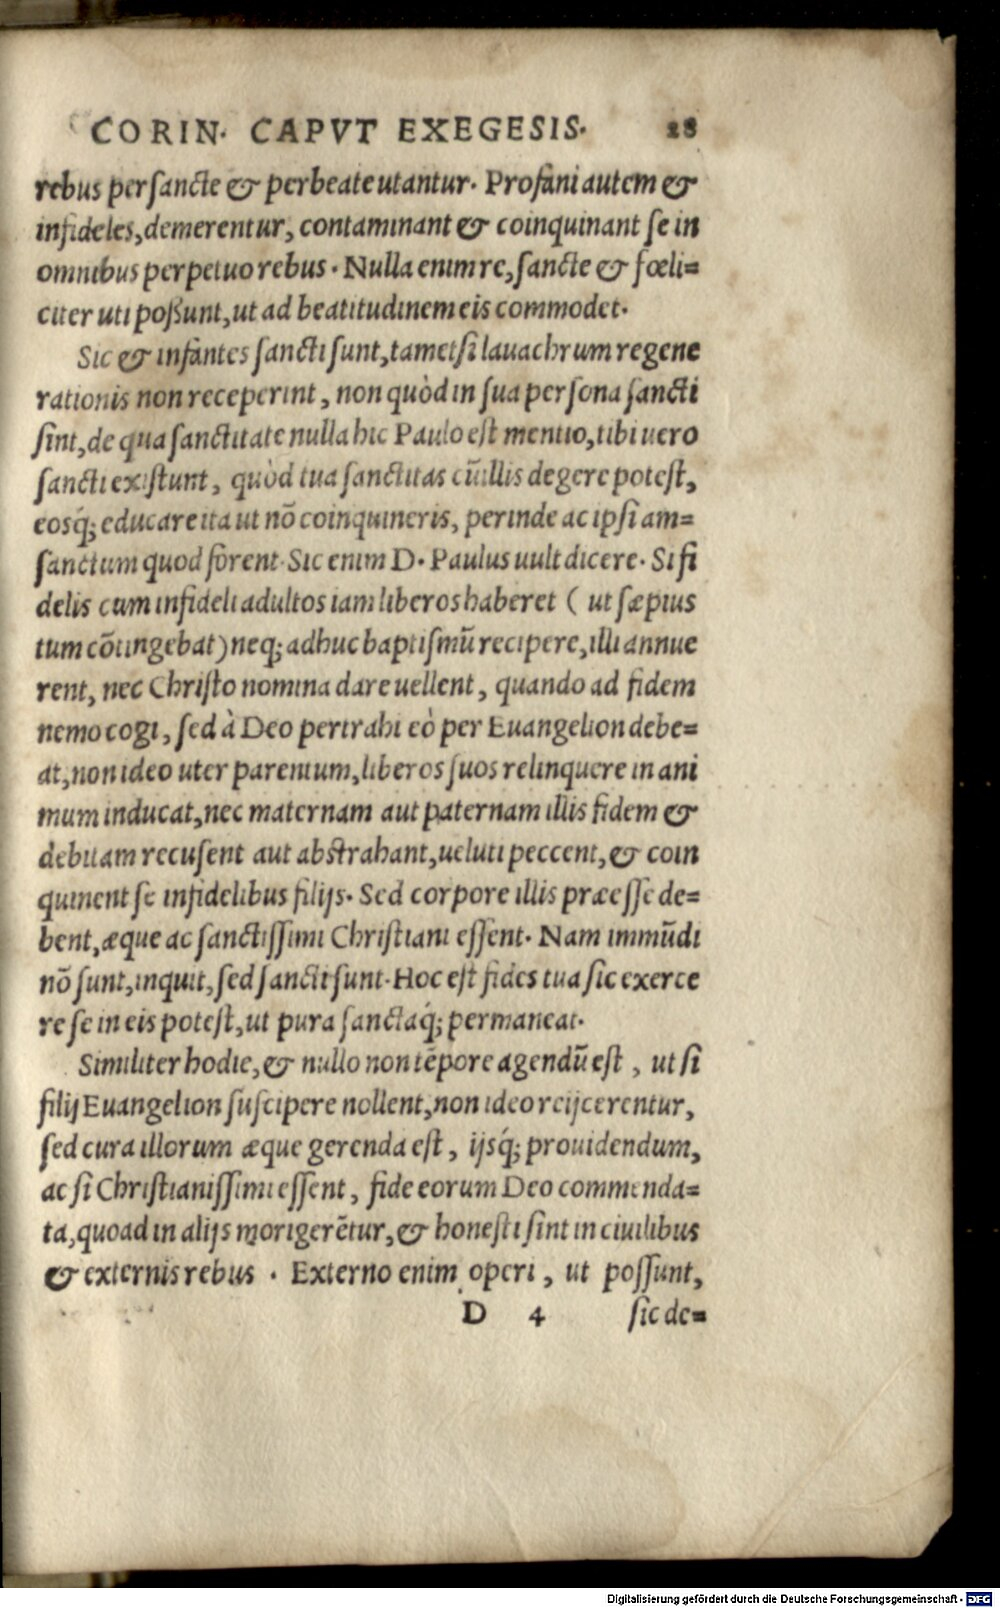 CORIN. CAPVT EXEGESIS. 28
rebus persancte & perbeate utantur. Profani autem &
infideles, demerentur, contaminant & coinquinant se in
omnibus perpetuo rebus. Nulla enim re, sancte & fœli=
citer uti poßunt, ut ad beatitudinem eis commodet.
Sic & infantes sancti sunt, tametsi lauachrum regene
rationis non receperint, non quòd in sua persona sancti
sint, de qua sanctitate nulla hic Paulo est mentio, tibi uero
sancti existunt, quòd tua sanctitas cũ illis degere potest,
eosq́; educare ita ut nõ coinquineris, perinde ac ipsi am=
sanctum quod forent. Sic enim D. Paulus uult dicere. Si fi
delis cum infideli adultos iam liberos haberet ( ut sæpius
tum cõtingebat) neq; adhuc baptismũ recipere, illi annue
rent, nec Christo nomina dare uellent, quando ad fidem
nemo cogi, sed à Deo pertrahi eò per Euangelion debe=
at, non ideo uter parentum, liberos suos relinquere in ani
mum inducat, nec maternam aut paternam illis fidem &
debitam recusent aut abstrahant, ueluti peccent, & coin
quinent se infidelibus filijs. Sed corpore illis præesse de=
bent, æque ac sanctissimi Christiani essent. Nam immũdi
nõ sunt, inquit, sed sancti sunt. Hoc est fides tua sic exerce
re se in eis potest, ut pura sanctaq́; permaneat.
Similiter hodie, & nullo non tẽpore agendũ est, ut si
filij Euangelion suscipere nollent, non ideo reijcerentur,
sed cura illorum æque gerenda est, ijsq́; prouidendum,
ac si Christianissimi essent, fide eorum Deo commenda=
ta, quoad in alijs morigerẽtur, & honesti sint in ciuilibus
& externis rebus. Externo enim operi, ut possunt,
D 4 sic de=
Digitalisierung gefördert durch die Deutsche Forschungsgemeinschaft - DFG